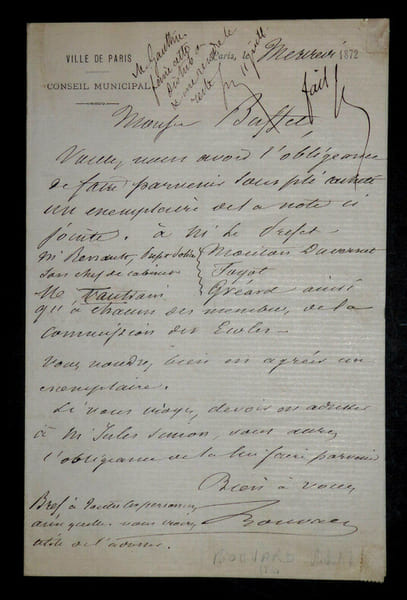 VILLE DE PARIS
CONSEIL MUNICIPAL
M. Gauthier
faire cette
distribution
et me rendre le
reste
11 juill
Paris, Mercredi 1872
fait
Monsieur Buffet
Veuillez nous avoir l'obligeance
de faire parvenir sous pli cacheté
un exemplaire de la note ci
jointe. à M. le Préfet
Mr Renault,
son chef de cabinet
Mouton Duvernet
Fayot
Gréard ainsi
Mr Vautrain
qu'à chacun des membres de la
Commission des Ecoles
Vous voudrez bien en agréer un
exemplaire.
Si vous croyez devoir en adresser
à Mr Jules Simon, vous aurez
l'obligeance de la lui faire parvenir
Bien à vous
Bref à toutes les personnes
à qui vous croirez
utile de l'adresser.
BOUVARD